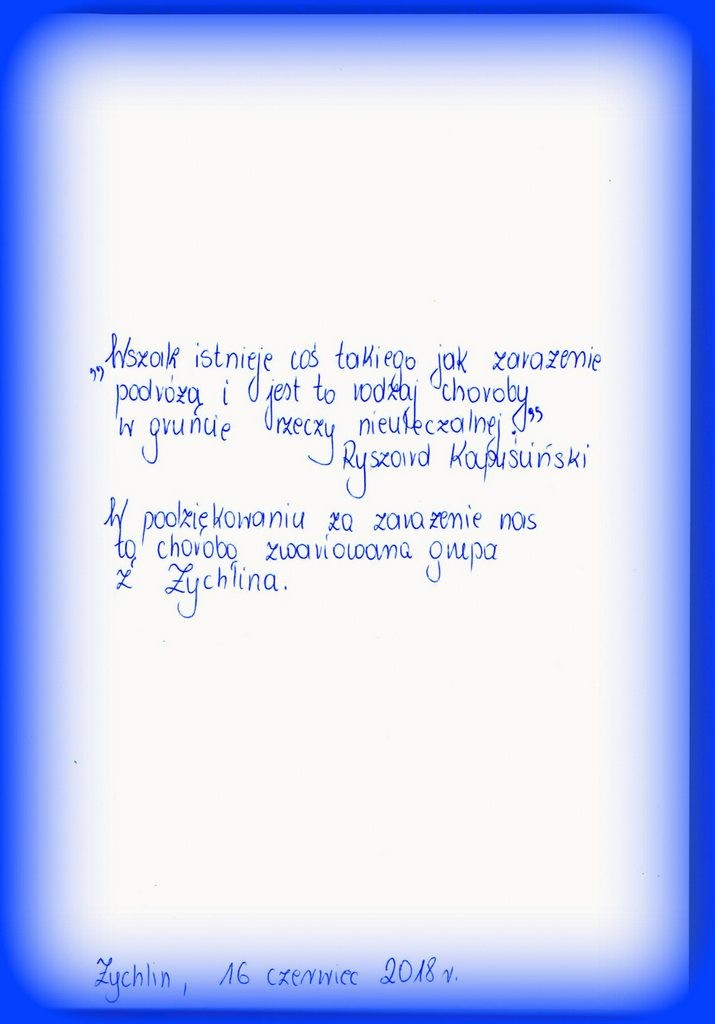 „Wszak istnieje coś takiego jak zarażenie
podróżą i jest to rodzaj choroby
w gruncie rzeczy nieuleczalnej.”
Ryszard Kapuściński
W podziękowaniu za zarażenie nas
tą chorobą zwariowana grupa
z Żychlina.
Żychlin, 16 czerwiec 2018 r.